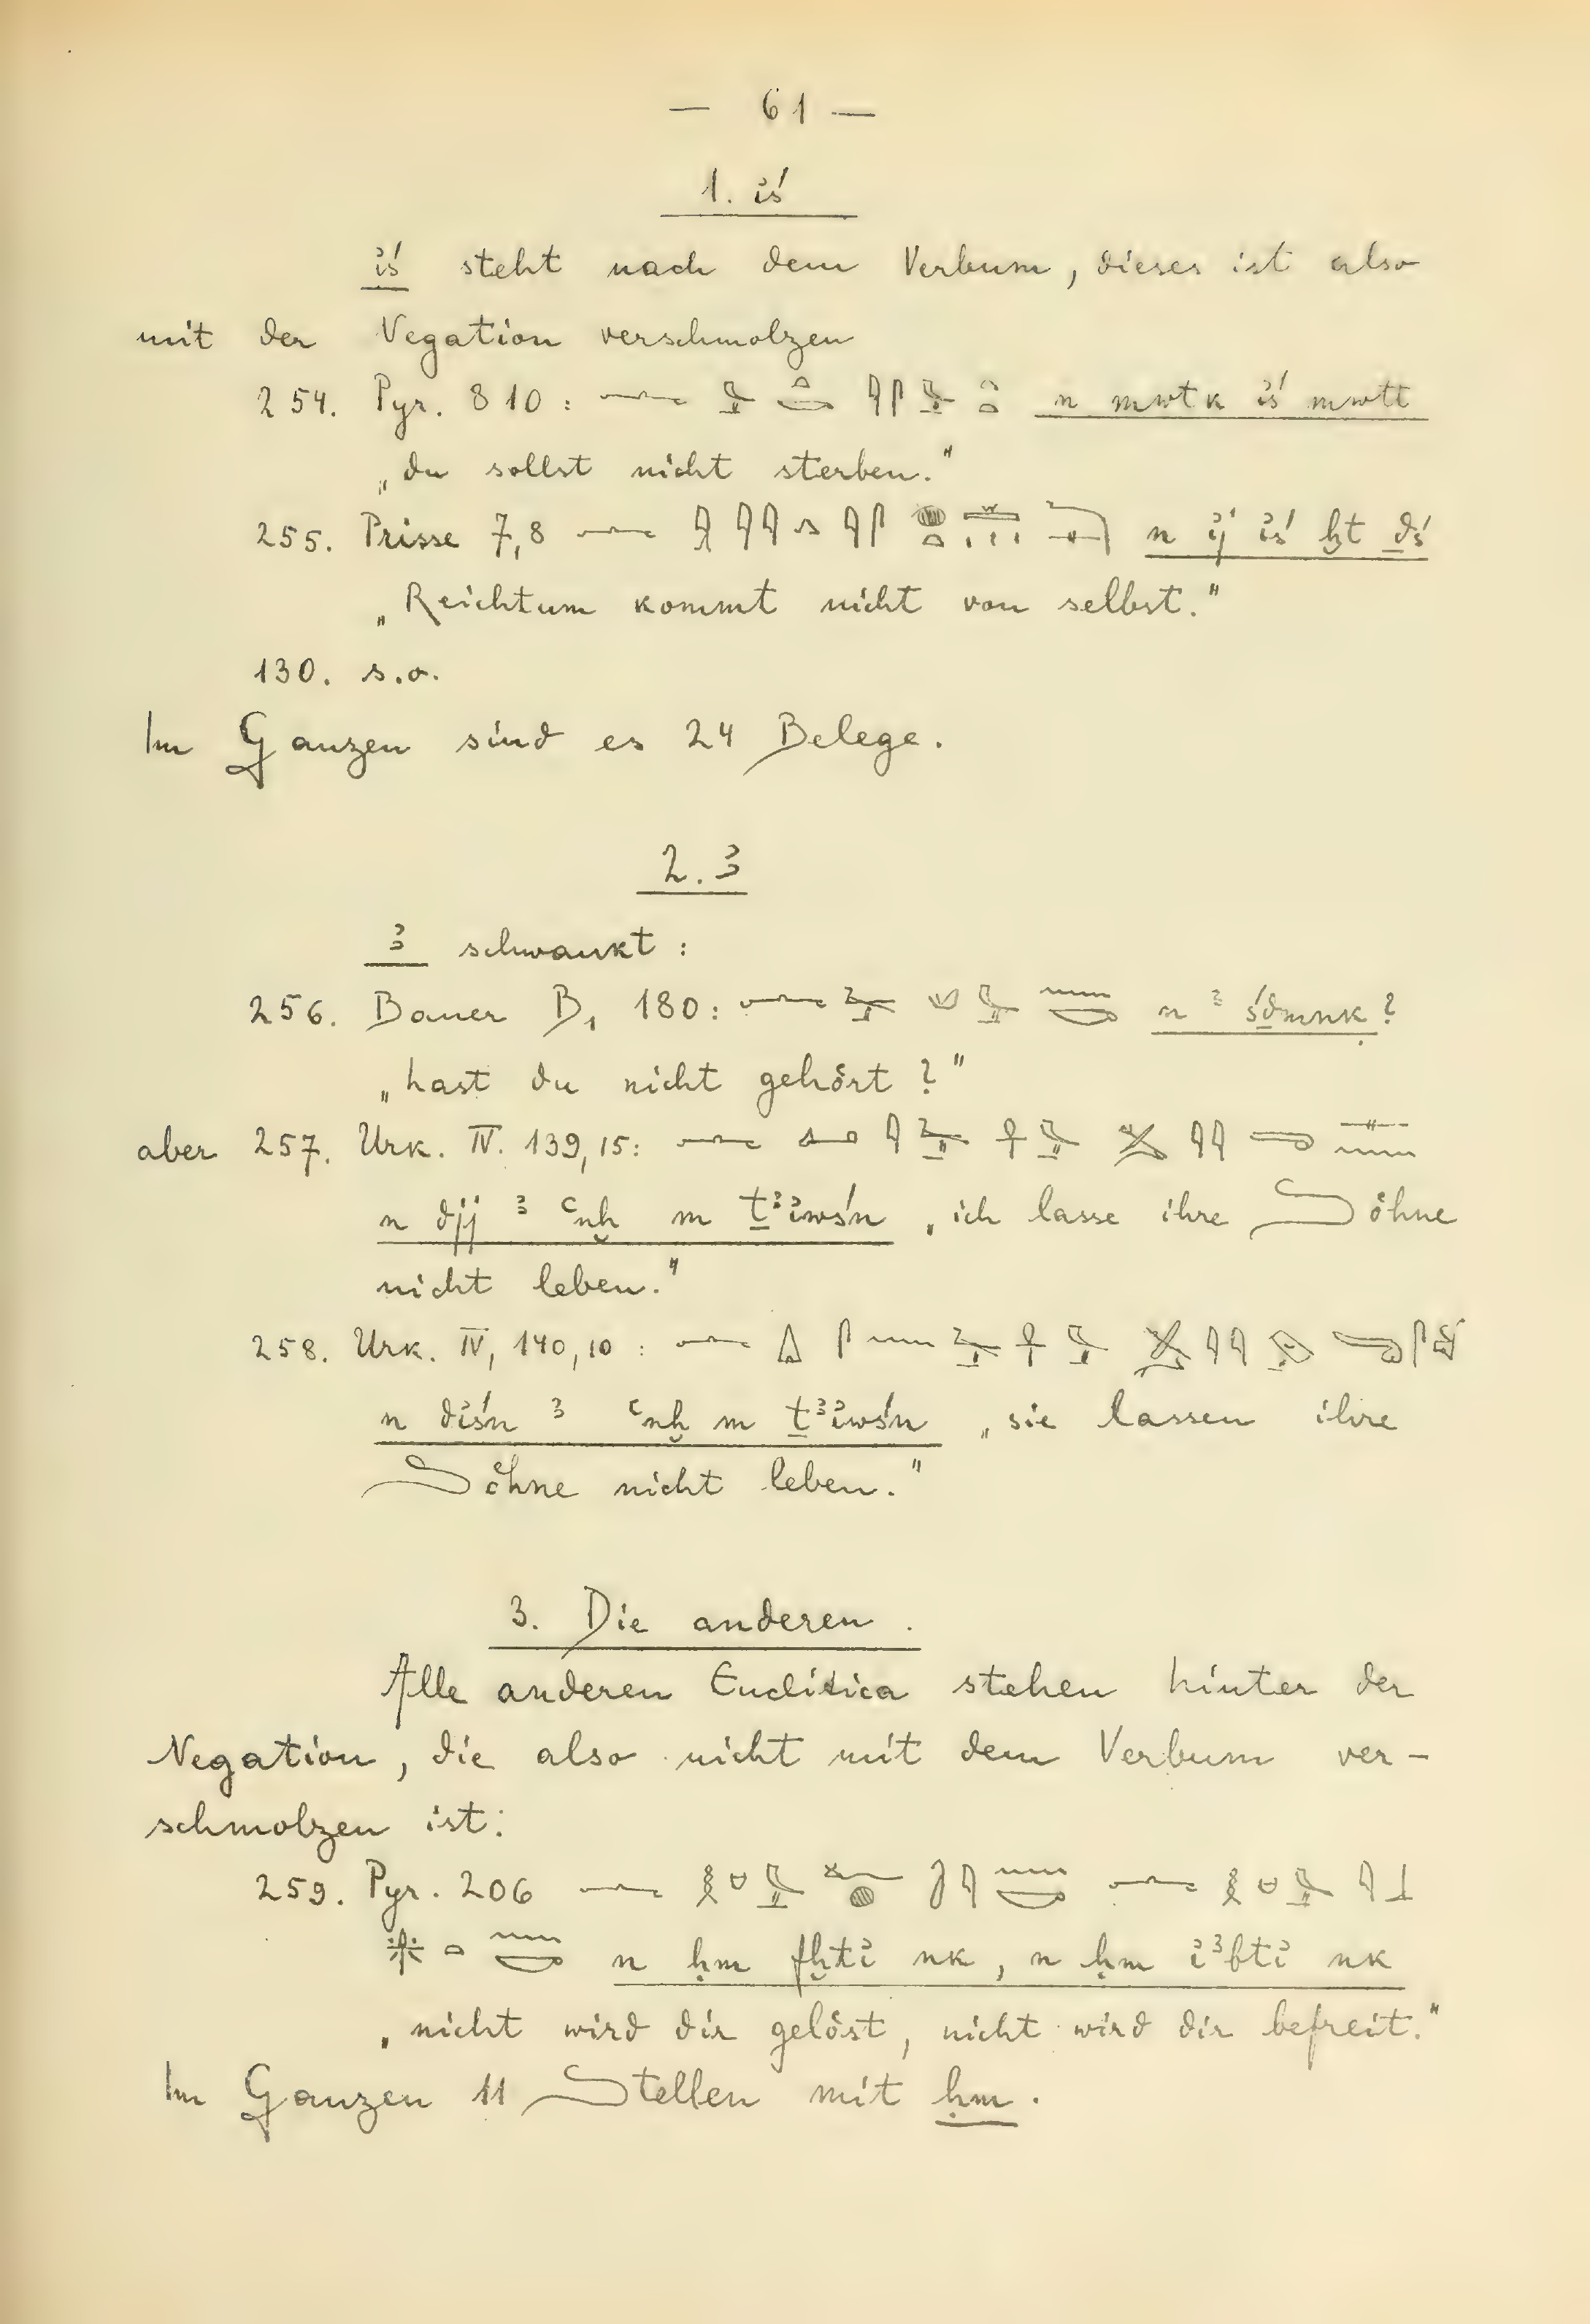 — 61 —
1. ı͗ś
ı͗ś steht nach dem Verbum, dieses ist also
mit der Negation verschmolzen
254. Pyr. 810: n mwtk ı͗ś mwtt
„du sollst nicht sterben."
255. Prisse 7,8 n ı͗j ı͗ś ḫt ḏś
„Reichtum kommt nicht von selbst."
130. s.o.
Im Ganzen sind es 24 Belege.
2. ꜣ
ꜣ schwankt:
256. Bauer B₁ 180: n ꜣ śḏmnk?
„hast du nicht gehört?"
aber 257. Urk. IV. 139,15:
n djj ꜣ ꜥnḫ m ṯꜣı͗wśn „ich lasse ihre Söhne
nicht leben."
258. Urk. IV, 140,10:
n dı͗śn ꜣ ꜥnḫ m ṯꜣı͗wśn „sie lassen ihre
Söhne nicht leben."
3. Die anderen.
Alle anderen Enclitica stehen hinter der
Negation, die also nicht mit dem Verbum ver-
schmolzen ist:
259. Pyr. 206
n ḥm fḫtı͗ nk, n ḥm ı͗ꜣbtı͗ nk
„nicht wird dir gelöst, nicht wird dir befreit."
Im Ganzen 11 Stellen mit ḥm.